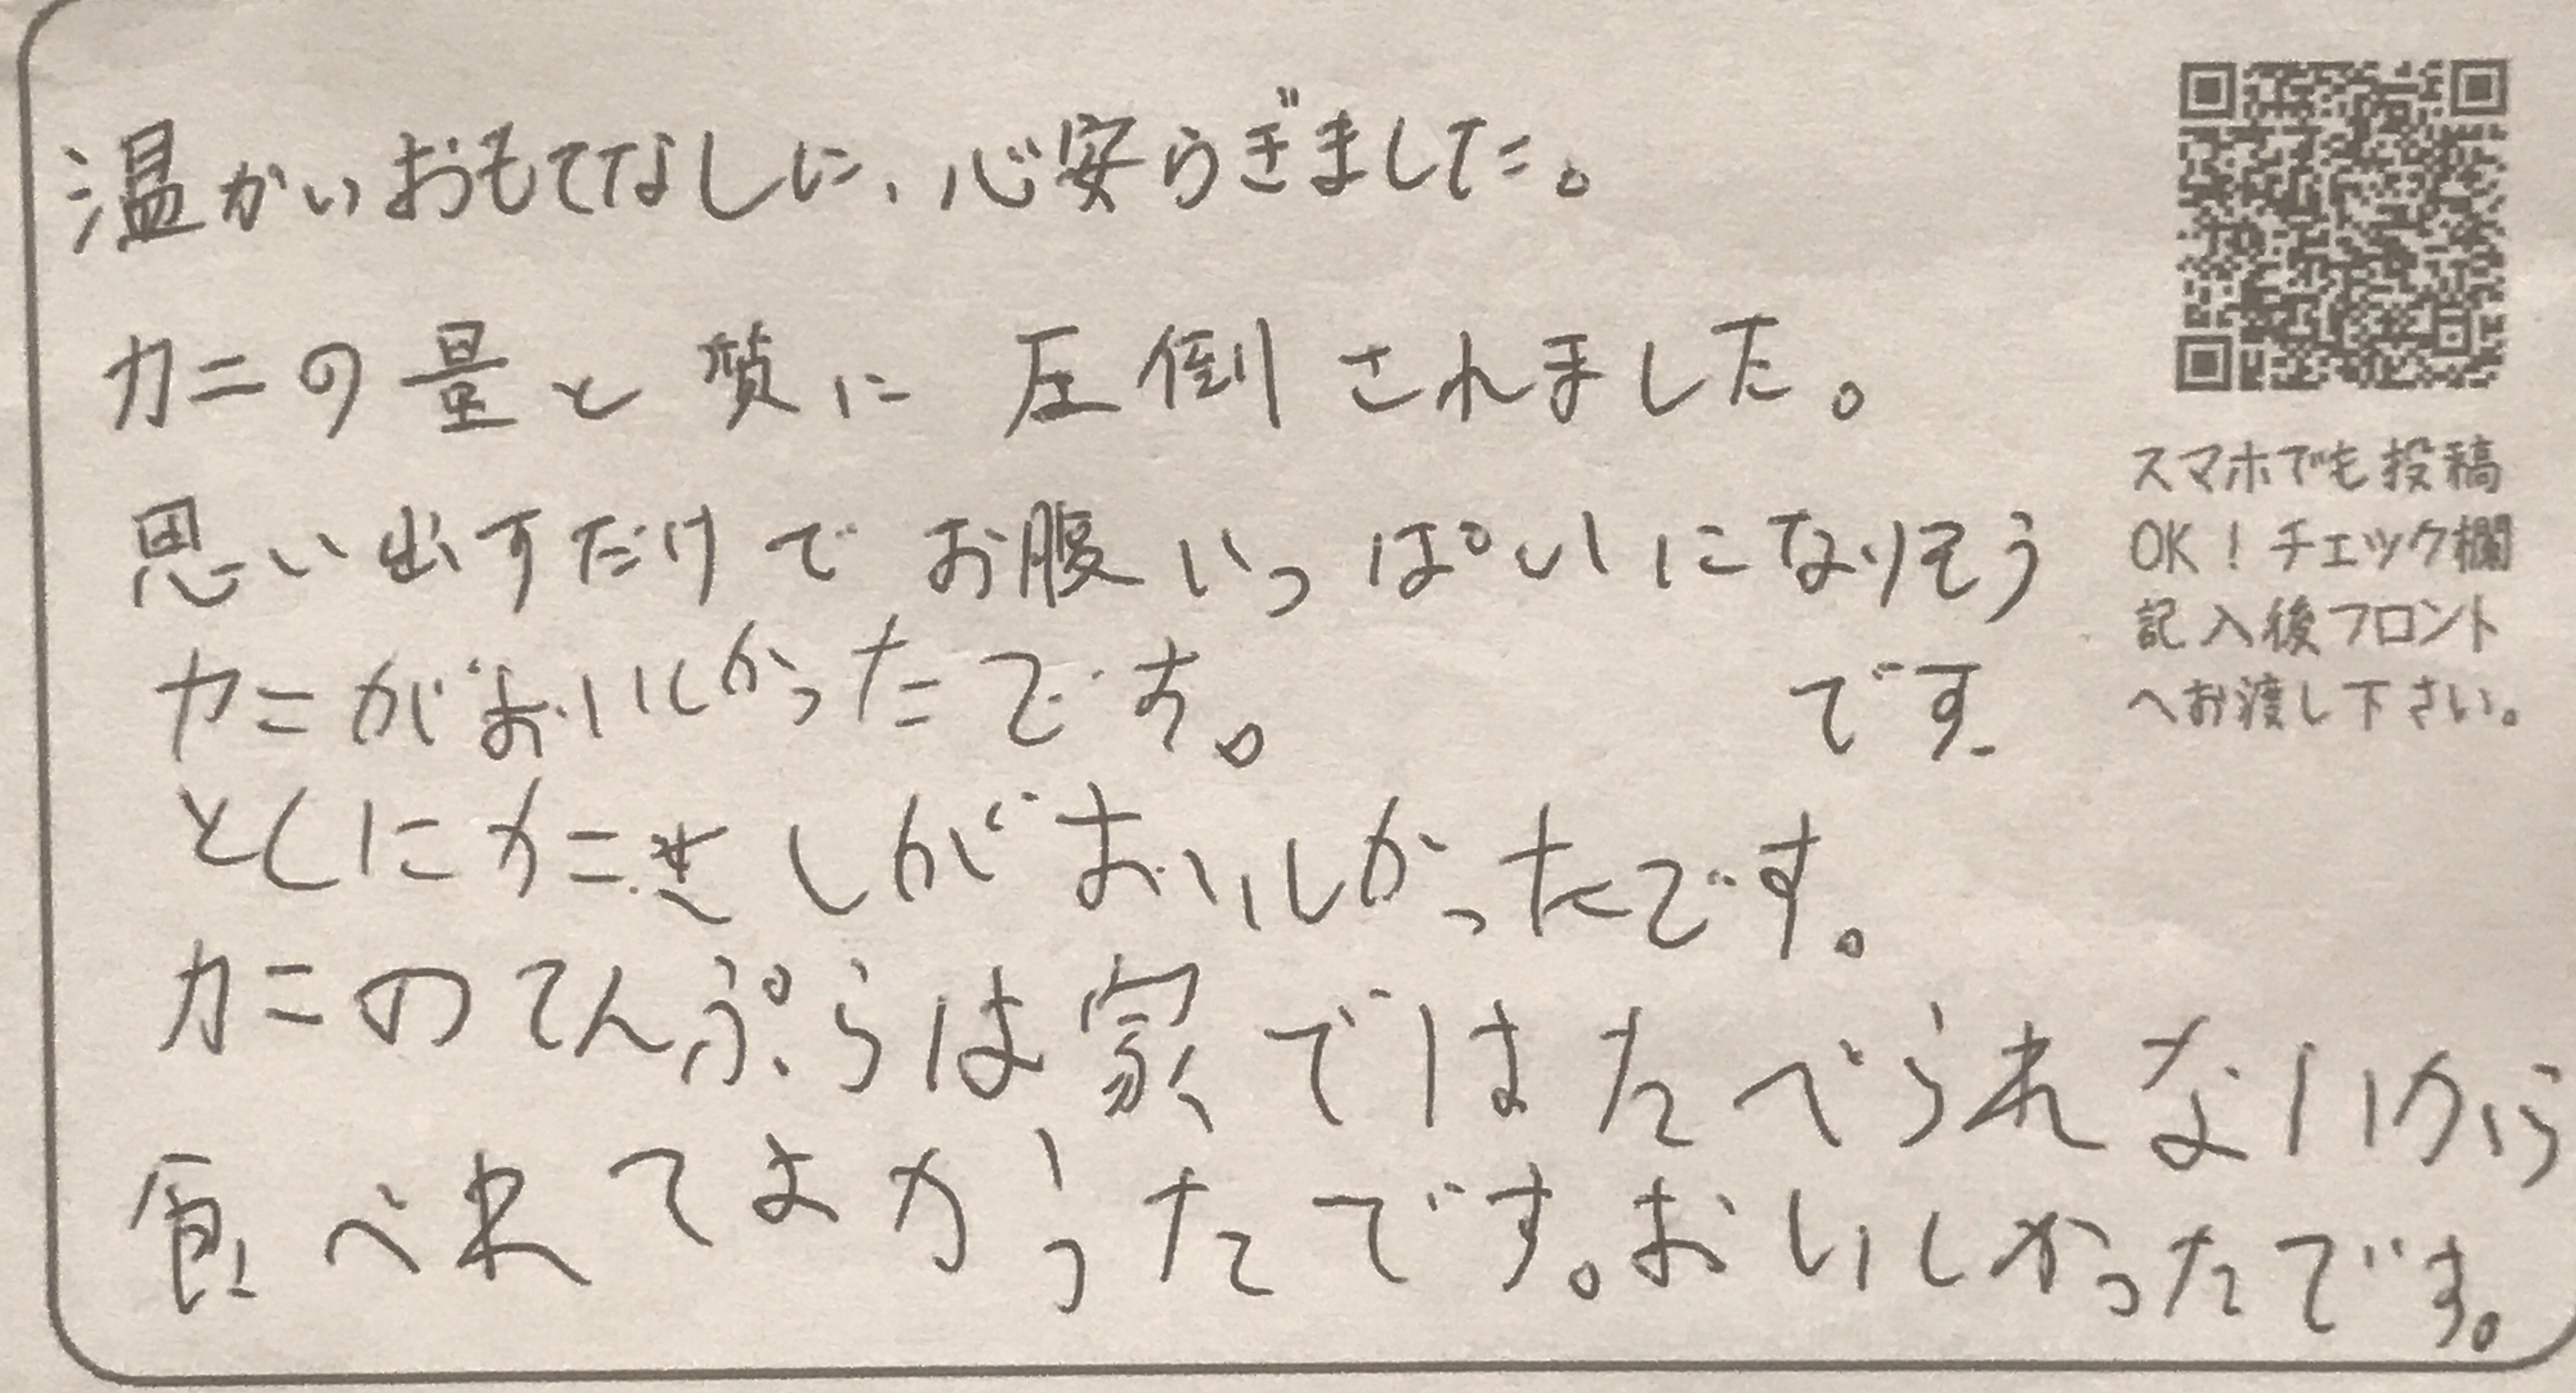 温かいおもてなしに、心安らぎました。
カニの量と質に圧倒されました。
思い出すだけでお腹いっぱいになりそう
です
カニがおいしかったです。
とくにカニさしがおいしかったです。
カニのてんぷらは家ではたべられないから
食べれてよかったです。おいしかったです。
スマホでも投稿
OK！チェック欄
記入後フロント
へお渡し下さい。